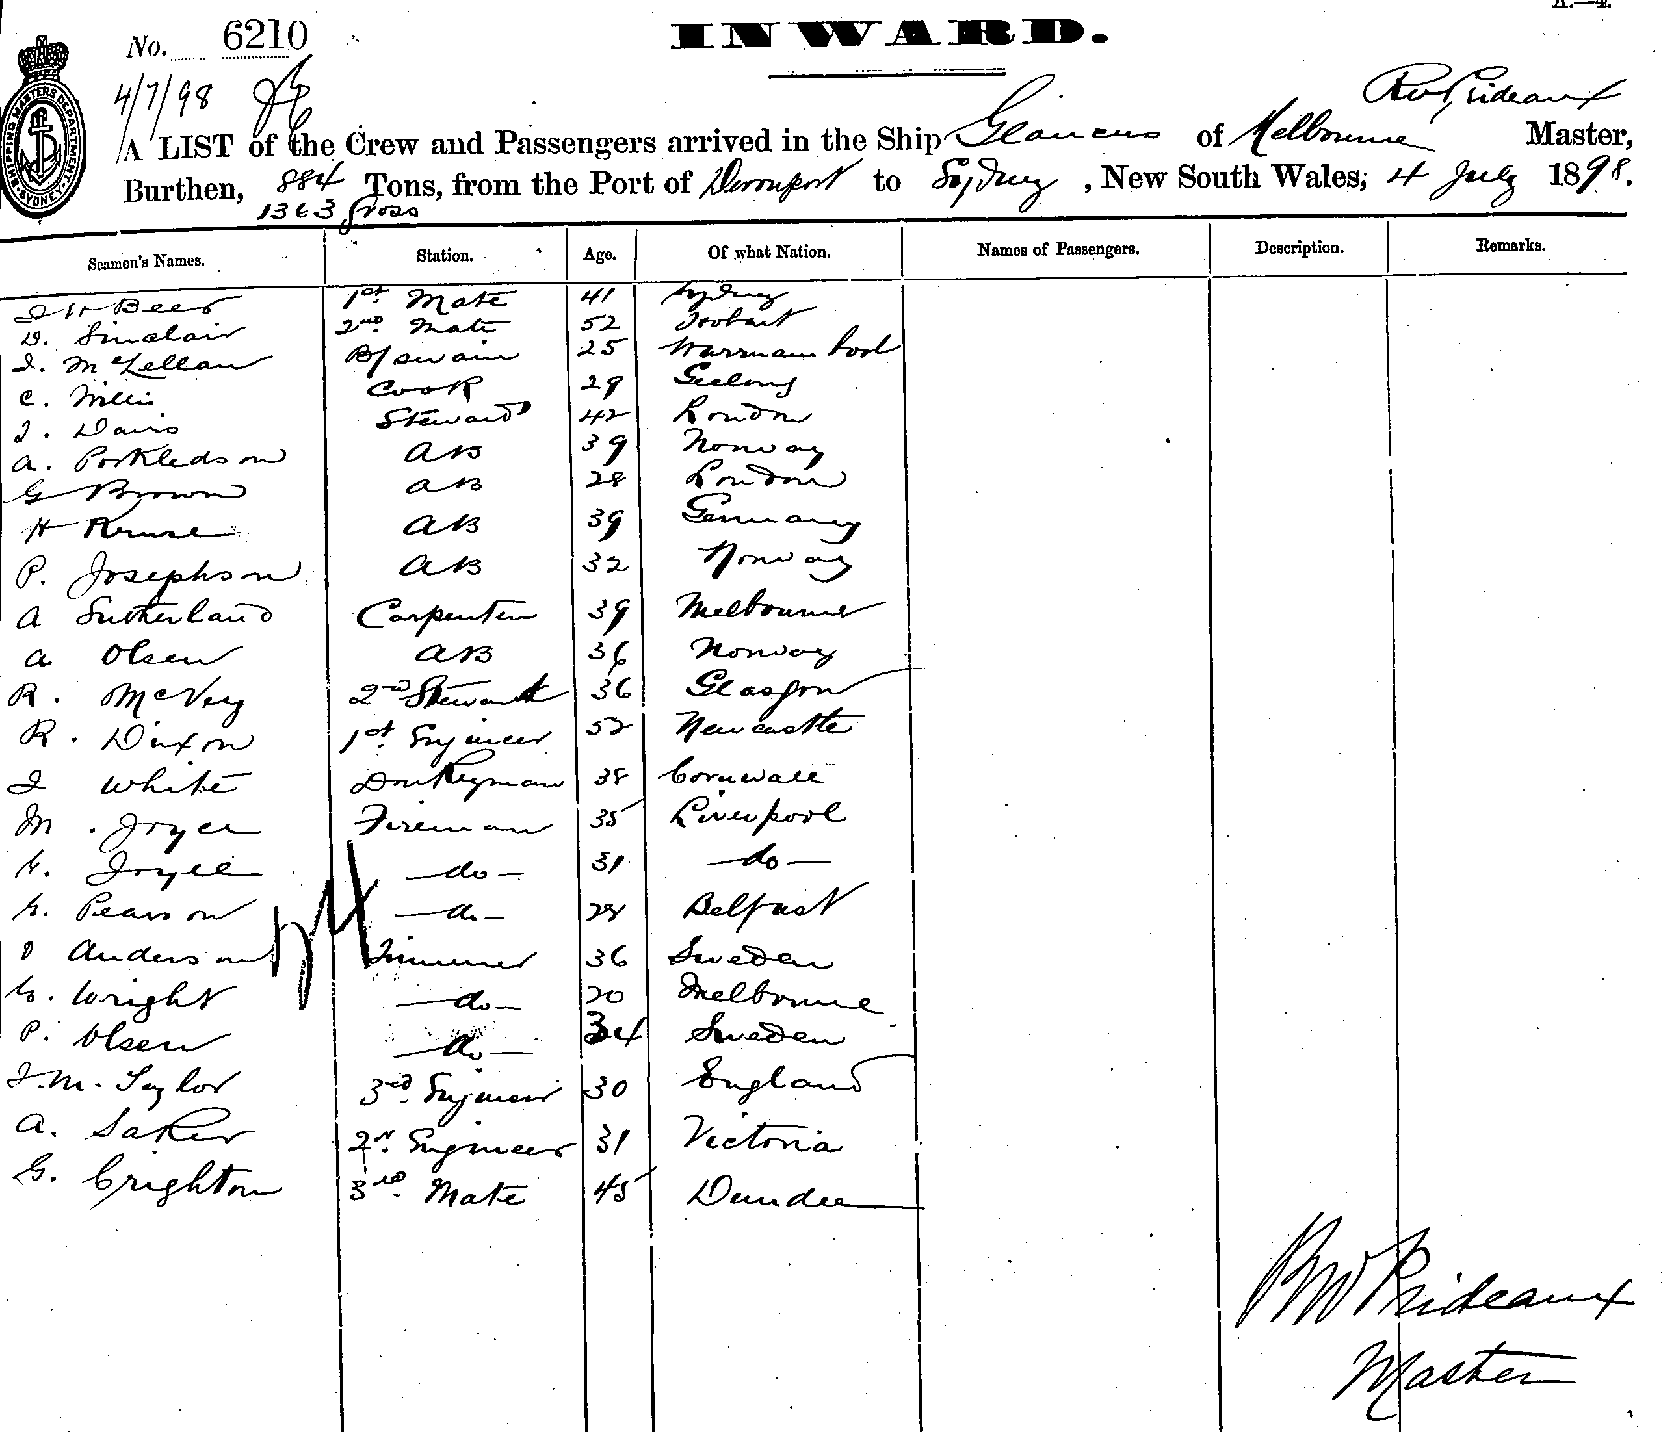 No. 6210
INWARD.
4/7/98
R W Prideaux
A LIST of the Crew and Passengers arrived in the Ship Glaucus of Melbourne Master,
Burthen, 884 Tons, from the Port of Devonport to Sydney, New South Wales, 4 July 1898.
1363 gross
SHIPPING MASTERS DEPARTMENT SYDNEY
Seamen's Names. Station. Age. Of what Nation. Names of Passengers. Description. Remarks.
J H Beer 1st Mate 41 Sydney
D. Sinclair 2nd Mate 52 Hobart
J. McLellan B/swain 25 Warrnambool
C. Willis Cook 29 Geelong
J. Davis Steward 42 London
A. Porkledson AB 39 Norway
G Brown AB 28 London
H Kruse AB 39 Germany
P. Josephson AB 32 Norway
A Sutherland Carpenter 39 Melbourne
A Olsen AB 36 Norway
R. McVey 2nd Steward 36 Glasgow
R. Dixon 1st Engineer 52 Newcastle
J White Donkeyman 38 Cornwall
M. Joyce Fireman 35 Liverpool
Joyce -do- 31 -do-
Pearson -do- 28 Belfast
Anderson Trimmer 36 Sweden
W. Wright -do- 20 Melbourne
P. Olsen -do- 34 Sweden
J. M. Taylor 3rd Engineer 30 England
A. Saker 2nd Engineer 31 Victoria
G. Crighton 3rd Mate 45 Dundee
R W Prideaux
Master